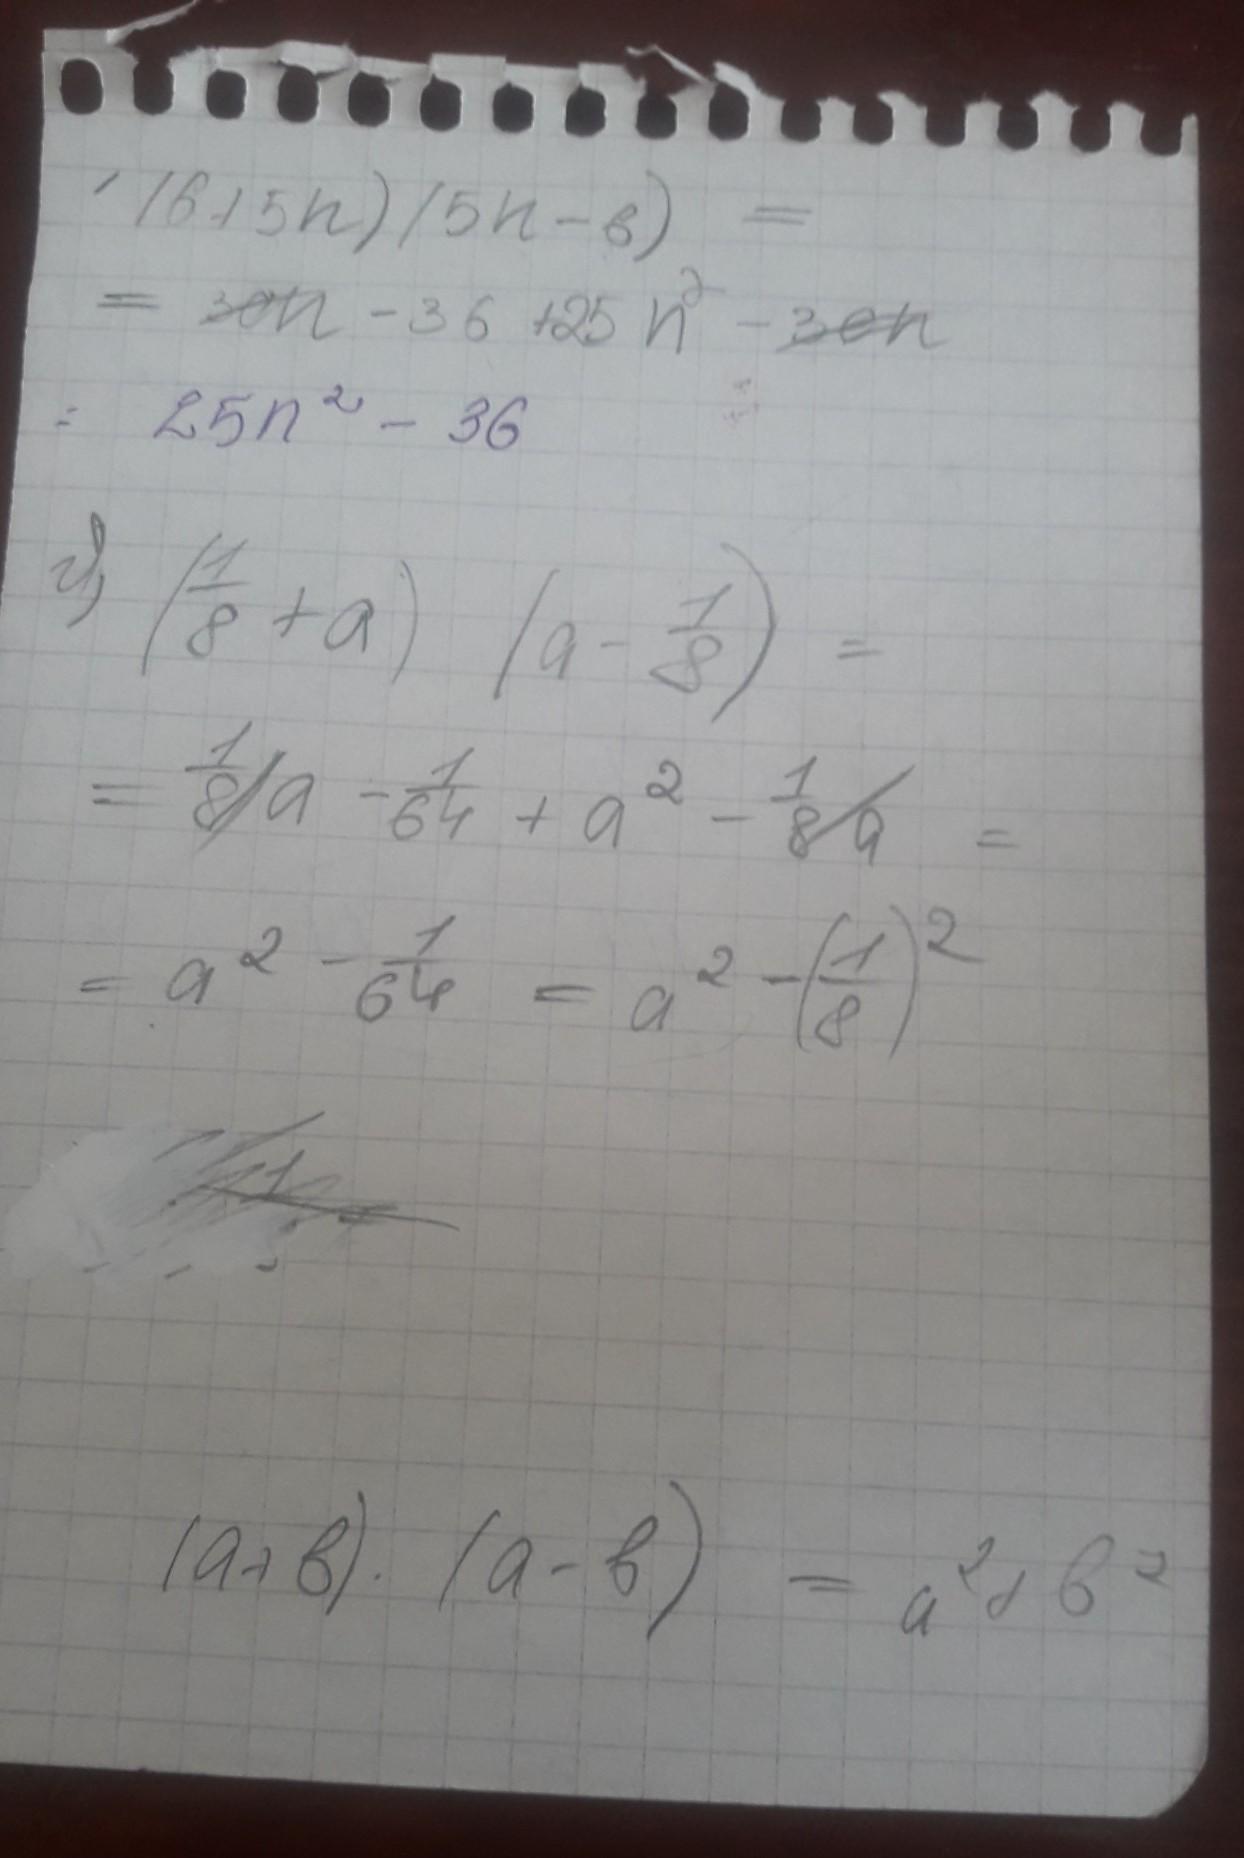 (6+5n)(5n-6) =
= 30n - 36 + 25n² - 30n
= 25n² - 36
г) (1/8 + a) (a - 1/8) =
= 1/8 a - 1/64 + a² - 1/8 a =
= a² - 1/64 = a² - (1/8)²
(a+в)·(a-в) = a²+в²